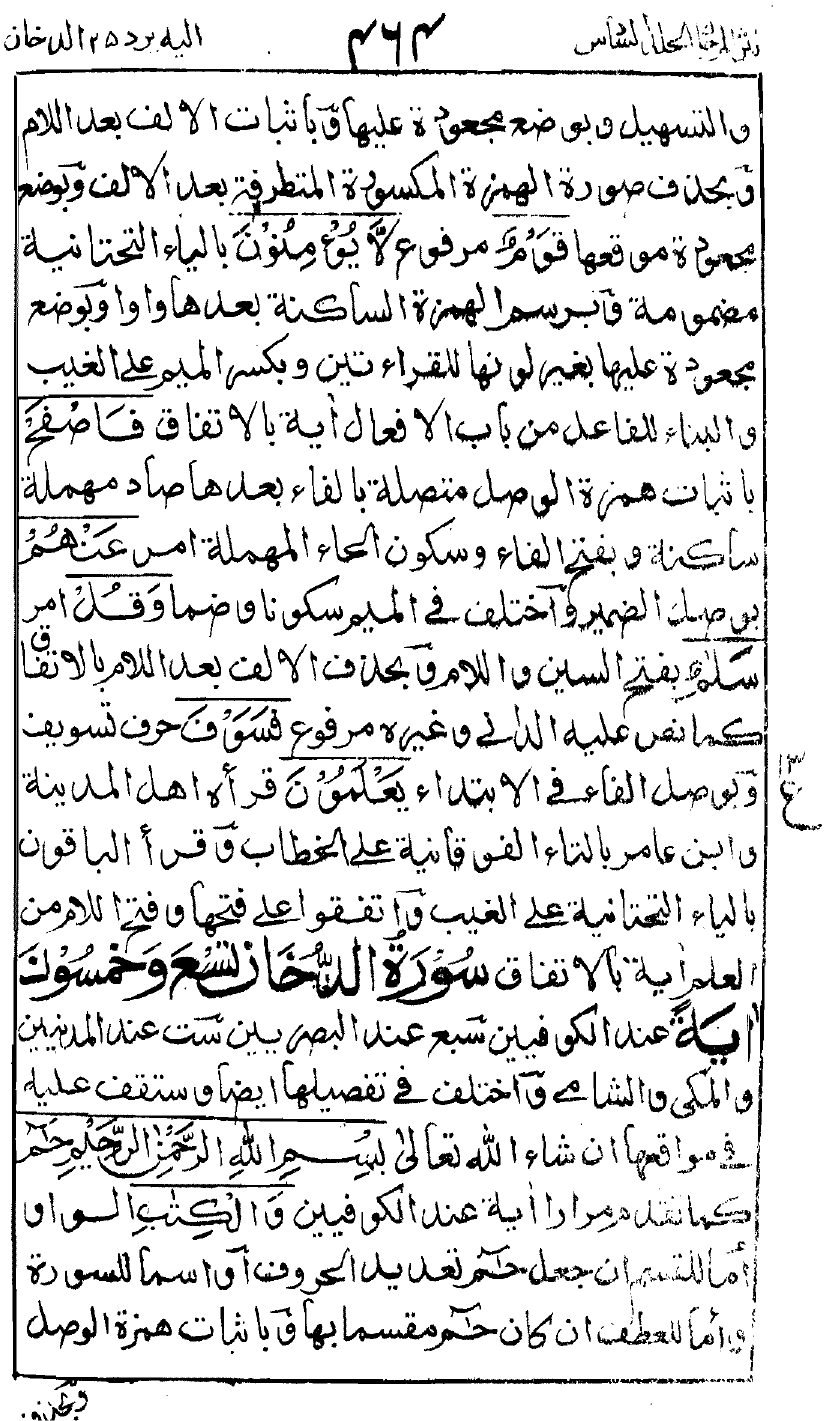 نثر المرجان المجلد السادس ۴۶۴ اليه يرد ۲۵ الدخان
والتسهيل وبوضع مجعودة عليها وباثبات الالف بعد اللام
وبحذف صورة الهمزة المكسورة المتطرفة بعد الالف وبوضع
مجعودة موقعها قَوْمٌ مرفوع لَّا يُؤْمِنُوْنَ بالياء التحتانية
مضمومة وبرسم الهمزة الساكنة بعدها واوا وبوضع
مجعودة عليها بغير لونها للقراءتين وبكسر الميم على الغيب
والبناء للفاعل من باب الافعال أية بالاتفاق فَاصْفَحْ
باثبات همزة الوصل متصلة بالفاء بعدها صاد مهملة
ساكنة وبفتح الفاء وسكون الحاء المهملة امر عَنْهُمْ
بوصل الضمير وآختلف في الميم سكونا وضما وَقُلْ امر
سَلٰمٌ بفتح السين واللام وبحذف الالف بعد اللام بالاتفاق
كما نص عليه الداني وغيره مرفوع فَسَوْفَ حرف تسويف
وبوصل الفاء في الابتداء يَعْلَمُوْنَ قرأه اهل المدينة
وابن عامر بالتاء الفوقانية على الخطاب وقرأ الباقون
بالياء التحتانية على الغيب وآتفقوا على فتحها وفتح اللام من
العلم أية بالاتفاق سُوْرَةُ الدُّخَانِ تِسْعَ وَخَمْسُوْنَ
اٰيَةً عند الكوفيين سبع عند البصريين ست عند المدنيين
والمكي والشامي وآختلف في تفصيلها ايضا وستقف عليه
في مواقعها ان شاء الله تعالى بِسْمِ اللهِ الرَّحْمٰنِ الرَّحِيْمِ حٰمٓ
كما تقدم مرارا أية عند الكوفيين وَالْكِتٰبِ الواو
أما للقسم ان جعل حٰمٓ تعديد الحروف أو اسما للسورة
وأما للعطف ان كان حٰمٓ مقسما بها وباثبات همزة الوصل
وبحذف